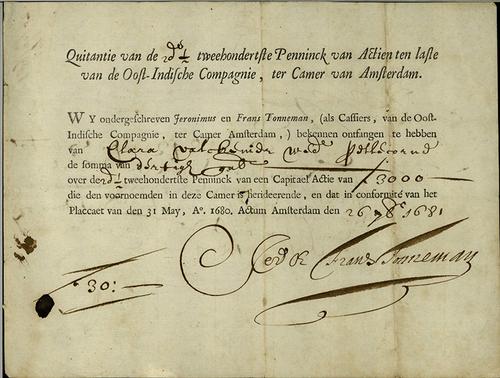 Quitantie van de 2de ½ tweehondertste Penninck van Actien ten laste
van de Oost-Indische Compagnie, ter Camer van Amsterdam.
WY ondergeschreven Jeronimus en Frans Tonneman, (als Cassiers, van de Oost-
Indische Compagnie, ter Camer Amsterdam,) bekennen ontfangen te hebben
van Clara wede
de somma van dertigh
over de 2de ½ tweehondertste Penninck van een Capitael Actie van f 3000—
die den voornoemden in deze Camer is herideerende, en dat in conformité van het
Placcaet van den 31 May, Ao. 1680. Actum Amsterdam den 26 1681
Frans Tonneman
f 30:—